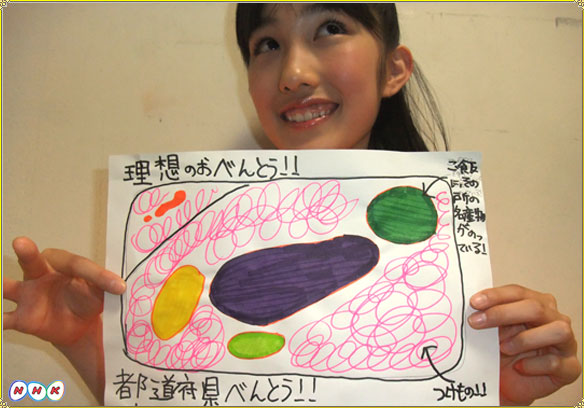 理想のおべんとう!!
ご飯
にその
所の
名産物
がのっ
ている!
つけもの!!
都道府県べんとう!!
NHK